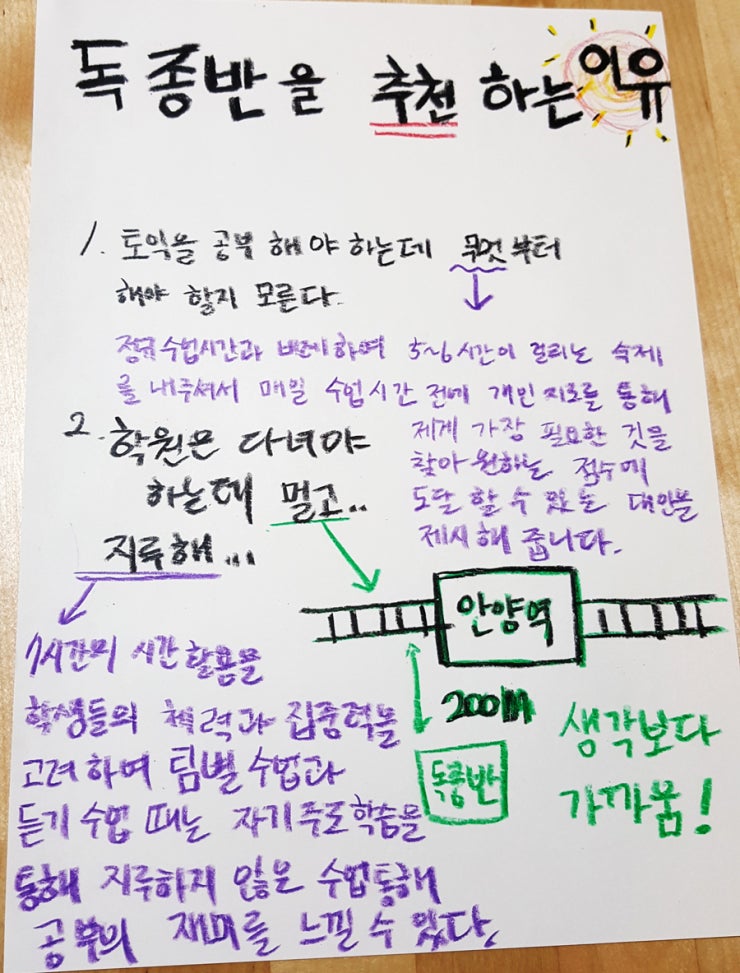 독종반을 추천 하는 이유
1. 토익을 공부 해야 하는데 무엇부터
해야 할지 모른다.
정규수업시간과 비례하여 5~6시간이 걸리는 숙제
를 내주셔서 매일 수업시간 전에 개인 지도를 통해
제게 가장 필요한 것을
찾아 원하는 점수에
도달 할 수 있는 대안을
제시해 줍니다.
2. 학원은 다녀야
하는데 멀고..
지루해...
안양역
200M
독종반
생각보다
가까움!
시간의 시간 활용을
학생들의 체력과 집중력을
고려하여 팀별 수업과
듣기 수업 때는 자기주도학습을
통해 지루하지 않은 수업통해
공부의 재미를 느낄 수 있다.